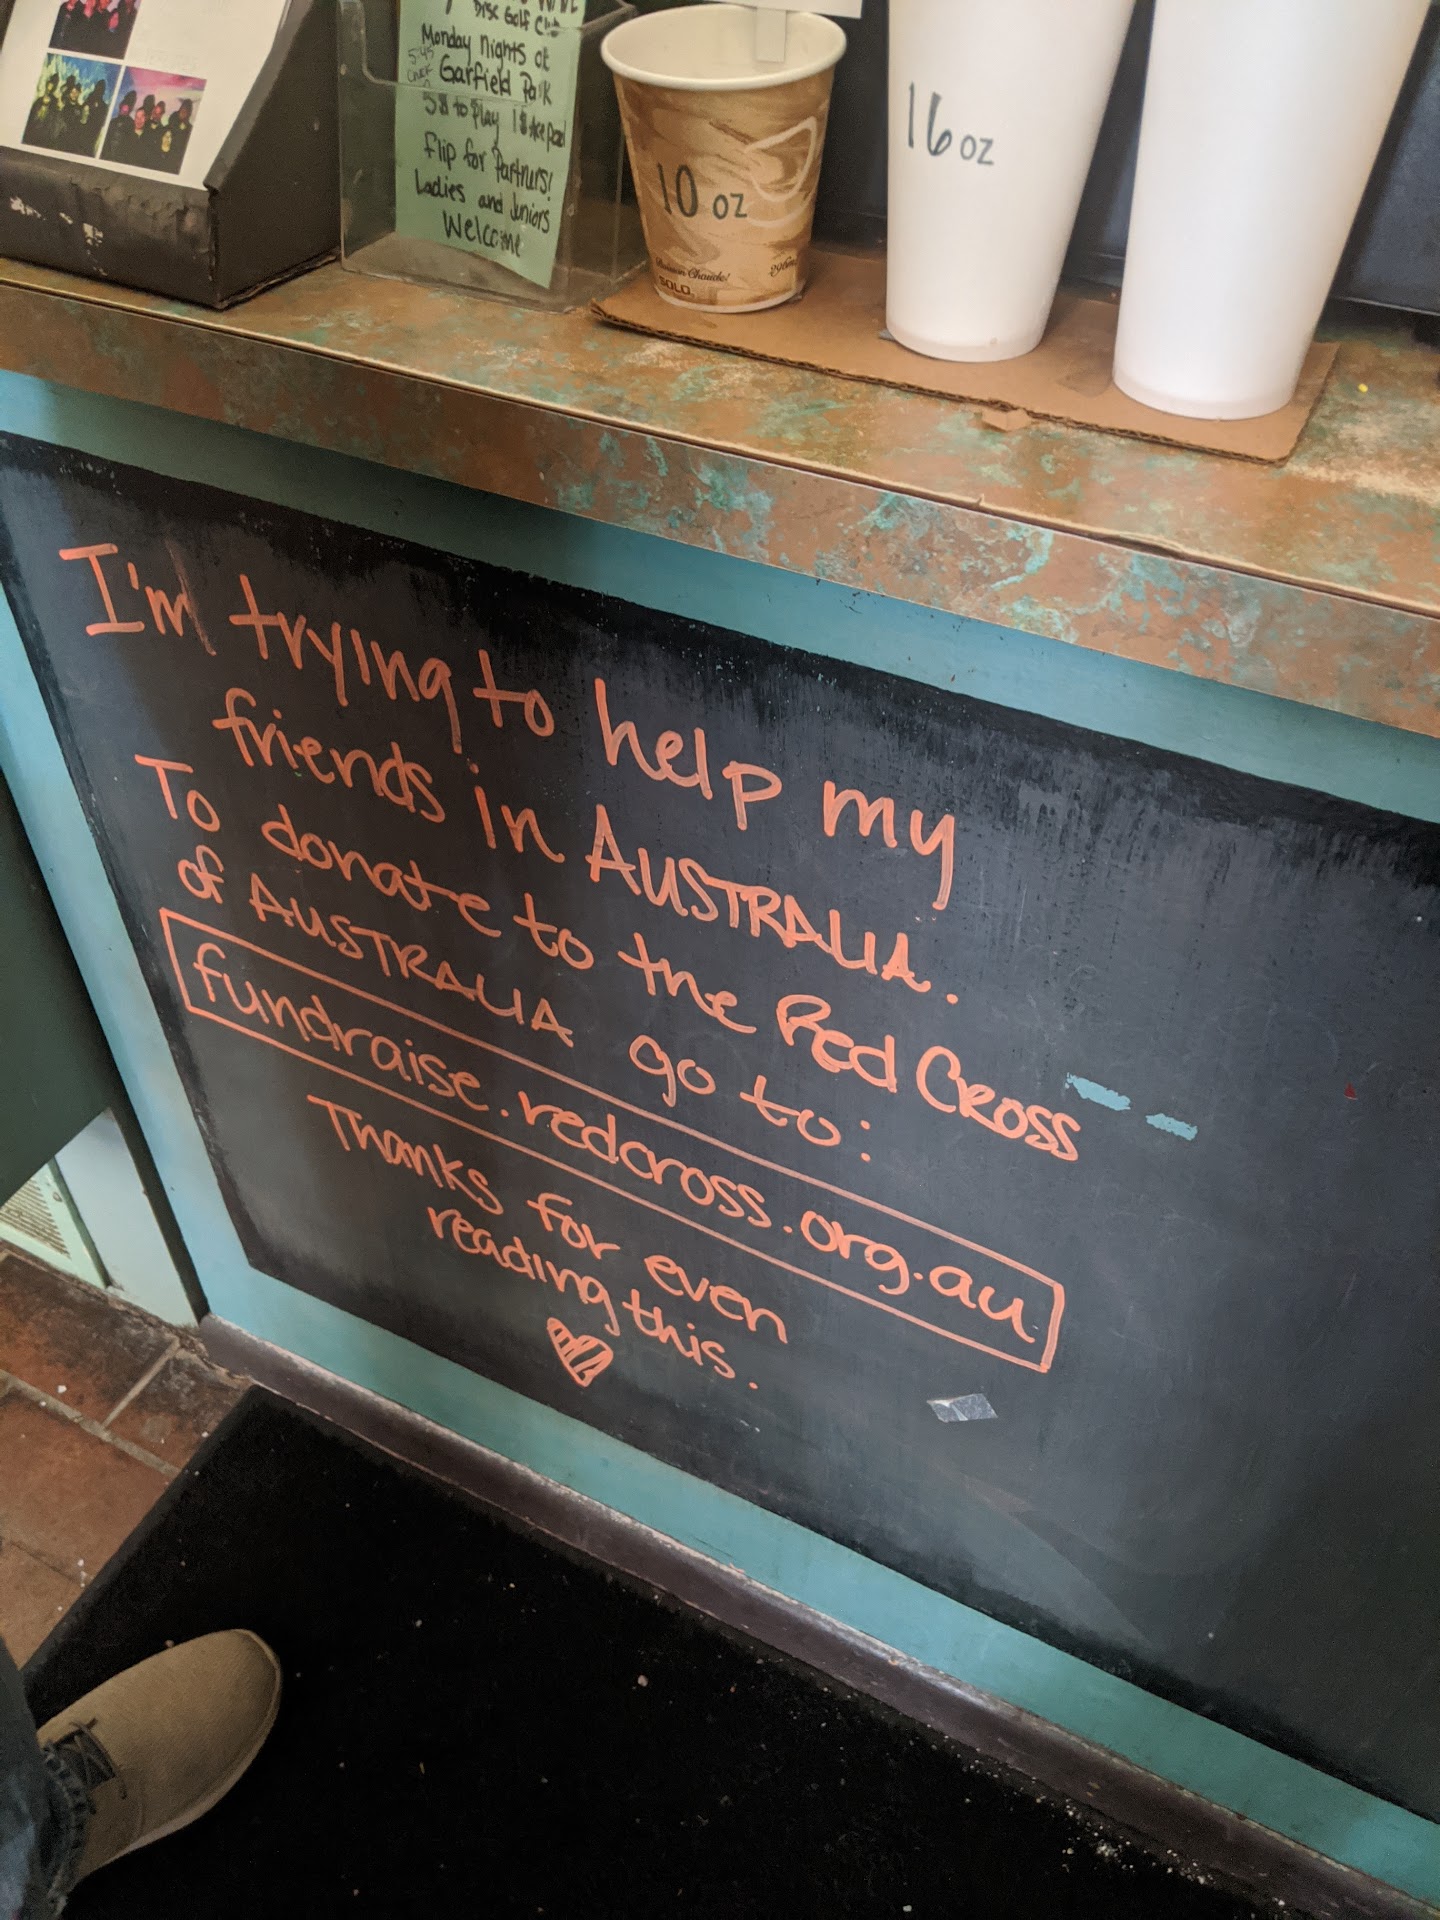 Disc Golf Club
Monday Nights at
5:45
Garfield Park
5$ to play 1$ Ace Pool
Flip for Partners!
Ladies and Juniors
Welcome
10 oz
SOLO.
16 oz
I'm trying to help my
friends in AUSTRALIA.
To donate to the Red Cross
of AUSTRALIA go to:
fundraise.redcross.org.au
Thanks for even
reading this.